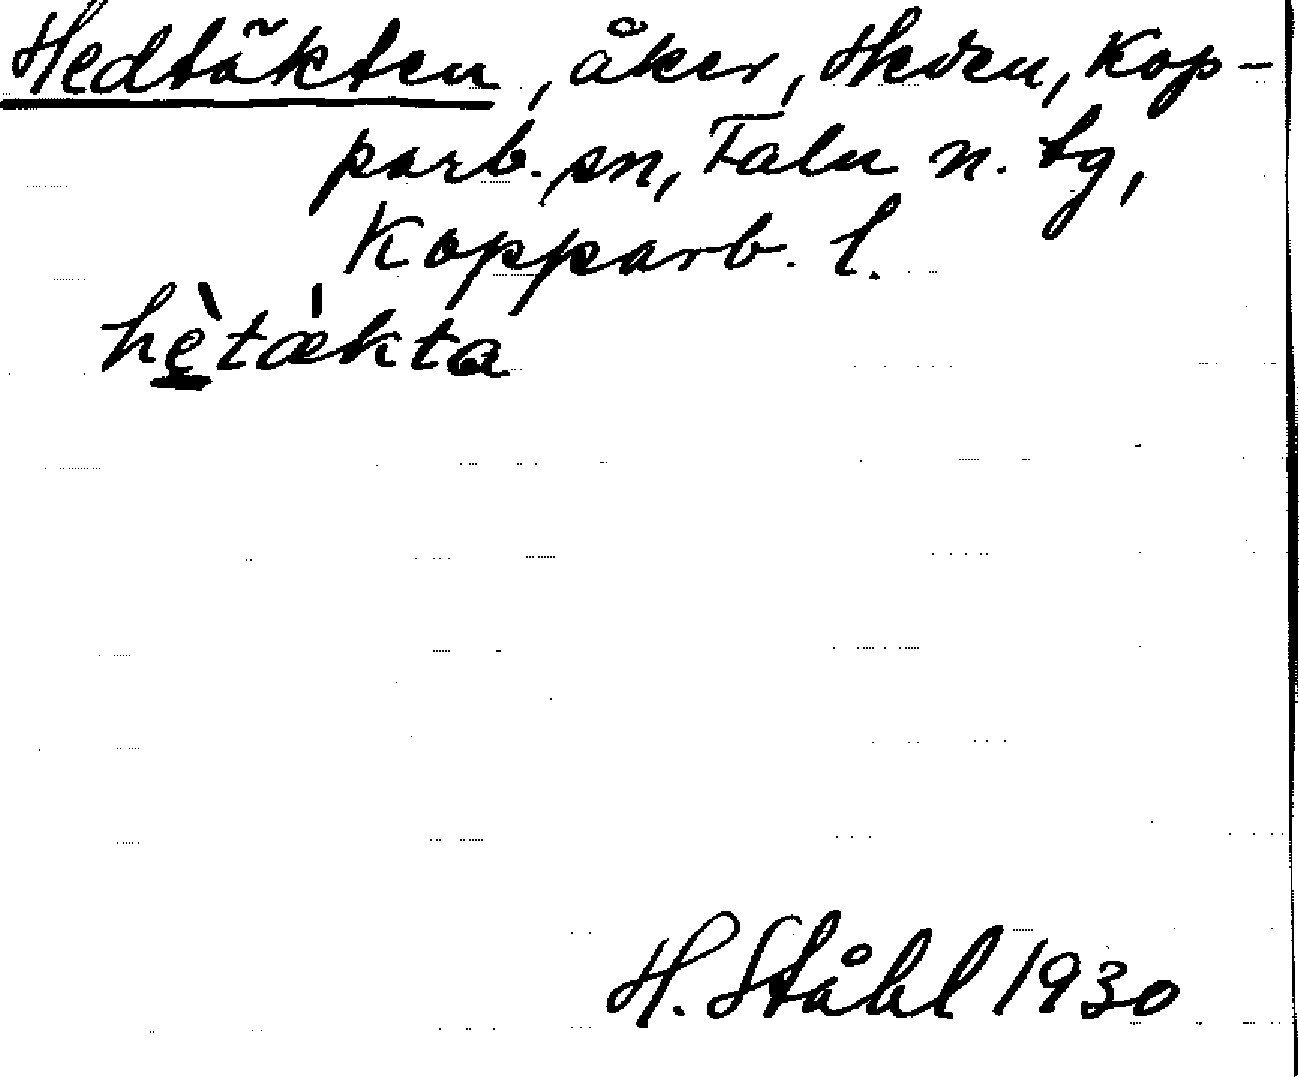 Hedtäkten, åker, Heden, Kop-
parb. sn, Falu n. tg,
Kopparb. l.
hètækta
H. Ståhl 1930